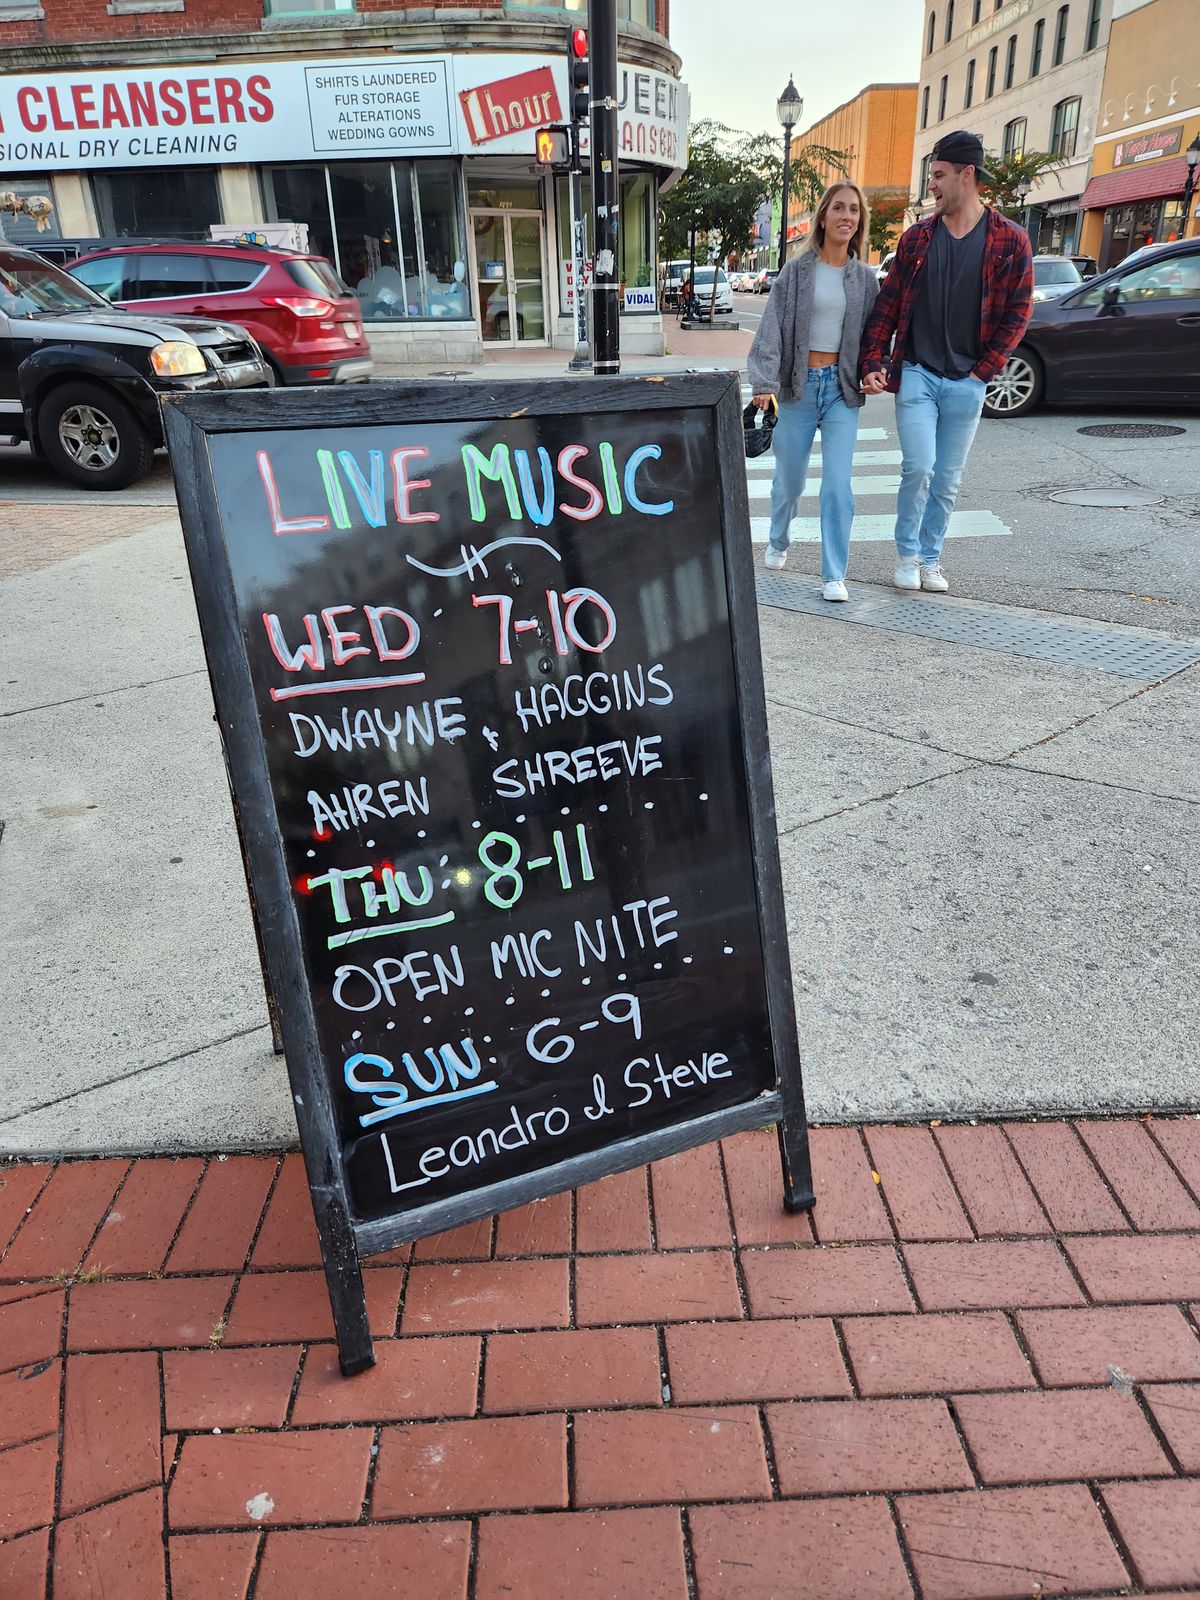 CLEANSERS
SIONAL DRY CLEANING
SHIRTS LAUNDERED
FUR STORAGE
ALTERATIONS
WEDDING GOWNS
1 hour
UEEN
CLEANSERS
VIDAL
LIVE MUSIC
WED: 7-10
DWAYNE & HAGGINS
AHREN SHREEVE
THU: 8-11
OPEN MIC NITE
SUN: 6-9
Leandro & Steve